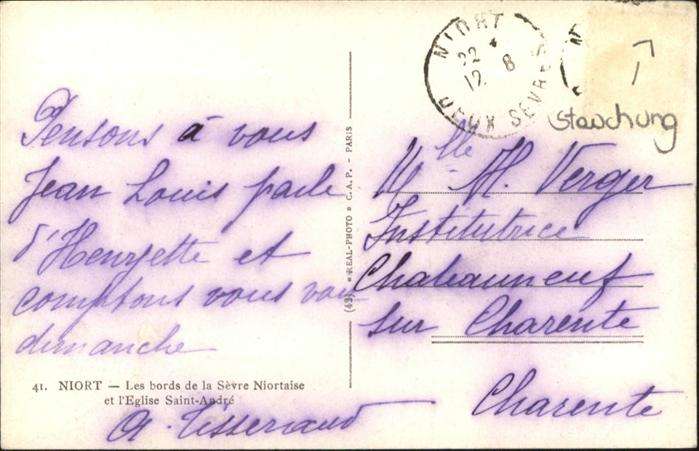 Pensons à vous
Jean Louis parle
d'Henryette et
comptons vous voir
dimanche
A. Tisseraud
41. NIORT — Les bords de la Sèvre Niortaise
et l'Eglise Saint-André
(43) « REAL-PHOTO » C. A. P. - PARIS
NIORT
22 *
12 8
DEUX SEVRES
N
Stauchung
Mlle H. Verger
Institutrice
Chateauneuf
sur Charente
Charente